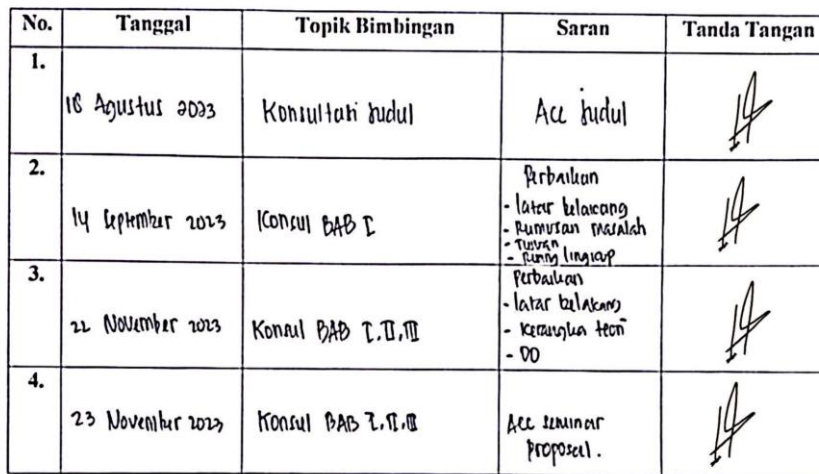 No. Tanggal Topik Bimbingan Saran Tanda Tangan
1.
18 Agustus 2023 Konsultasi Judul Acc Judul
2.
14 September 2023 Konsul BAB I
Perbaikan
- latar belakang
- Rumusan masalah
- Tujuan
- Ruang lingkup
3.
22 November 2023 Konsul BAB I, II, III
Perbaikan
- latar belakang
- Kerangka teori
- DO
4.
23 November 2023 Konsul BAB I, II, III
Acc seminar
proposal.